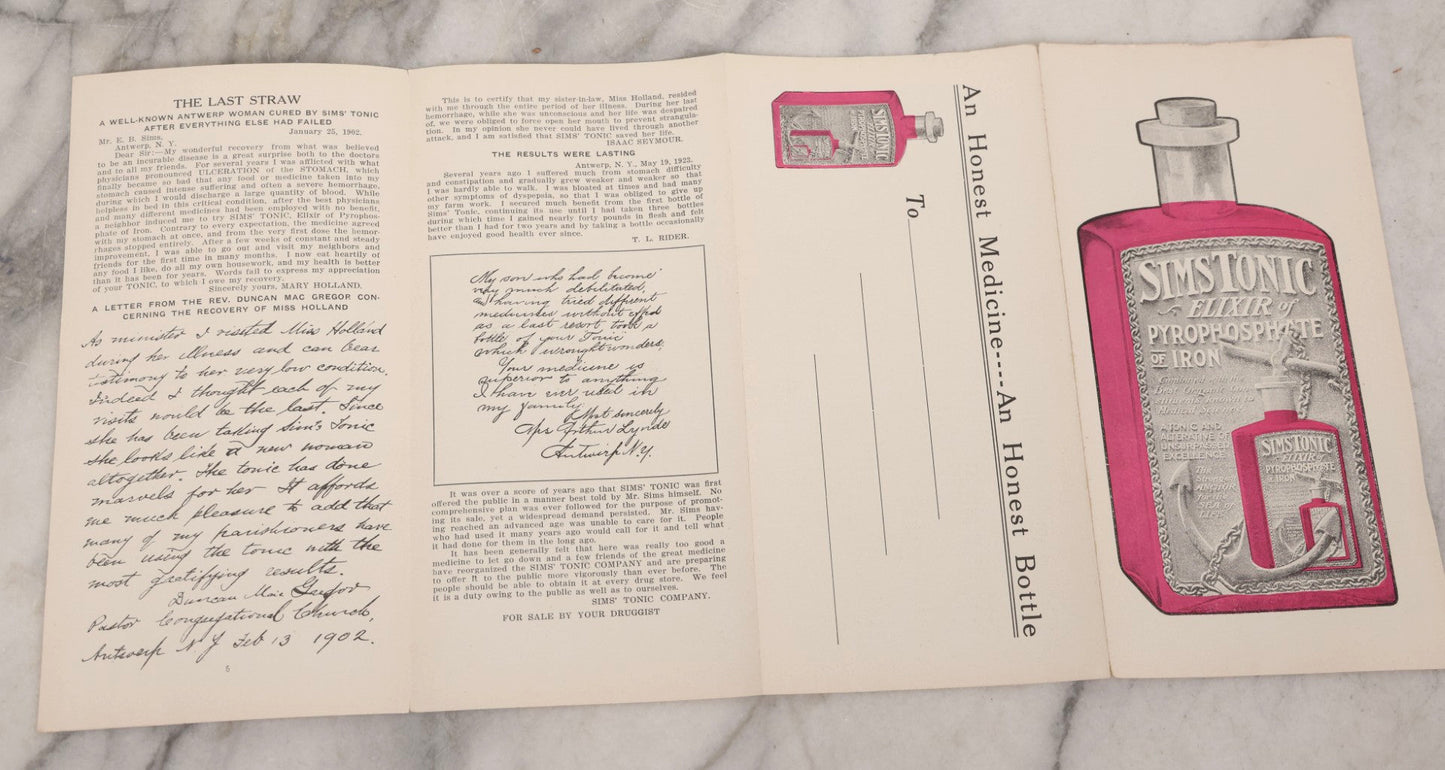 THE LAST STRAW
A WELL-KNOWN ANTWERP WOMAN CURED BY SIMS' TONIC
AFTER EVERYTHING ELSE HAD FAILED
January 25, 1902.
Mr. E. B. Sims,
Antwerp, N. Y.
Dear Sir:—My wonderful recovery from what was believed
to be an incurable disease is a great surprise both to the doctors
and to all my friends. For several years I was afflicted with what
physicians pronounced ULCERATION of the STOMACH, which
finally became so bad that any food or medicine taken into my
stomach caused intense suffering and often a severe hemorrhage,
during which I would discharge a large quantity of blood. While
helpless in bed in this critical condition, after the best physicians
and many different medicines had been employed with no benefit,
a neighbor induced me to try SIMS' TONIC, Elixir of Pyrophos-
phate of Iron. Contrary to every expectation, the medicine agreed
with my stomach at once, and from the very first dose the hemor-
rhages stopped entirely. After a few weeks of constant and steady
improvement, I was able to go out and visit my neighbors and
friends for the first time in many months. I now eat heartily of
any food I like, do all my own housework, and my health is better
than it has been for years. Words fail to express my appreciation
of your TONIC, to which I owe my recovery.
Sincerely yours, MARY HOLLAND.
A LETTER FROM THE REV. DUNCAN MAC GREGOR CON-
CERNING THE RECOVERY OF MISS HOLLAND
As minister I visited Miss Holland
during her illness and can bear
testimony to her very low condition.
Indeed I thought each of my
visits would be the last. Since
she has been taking Sim's Tonic
she looks like a new woman
altogether. The tonic has done
marvels for her It affords
me much pleasure to add that
many of my parishioners have
been using the tonic with the
most gratifying results.
Duncan Mac Gregor
Pastor Congregational Church,
Antwerp N. Y Feb 13 1902.
5
This is to certify that my sister-in-law, Miss Holland, resided
with me through the entire period of her illness. During her last
hemorrhage, while she was unconscious and her life was despaired
of, we were obliged to force open her mouth to prevent strangula-
tion. In my opinion she never could have lived through another
attack, and I am satisfied that SIMS' TONIC saved her life.
ISAAC SEYMOUR.
THE RESULTS WERE LASTING
Antwerp, N. Y., May 19, 1923.
Several years ago I suffered much from stomach difficulty
and constipation and gradually grew weaker and weaker so that
I was hardly able to walk. I was bloated at times and had many
other symptoms of dyspepsia, so that I was obliged to give up
my farm work. I secured much benefit from the first bottle of
Sims' Tonic, continuing its use until I had taken three bottles
during which time I gained nearly forty pounds in flesh and felt
better than I had for two years and by taking a bottle occasionally
have enjoyed good health ever since.
T. L. RIDER.
My son who had become
very much debilitated,
and having tried different
medicines without effect
as a last resort took a
bottle of your Tonic
which wrought wonders.
Your medicine is
superior to anything
I have ever used in
my family
Most sincerely
Mrs Arthur Lynde
Antwerp N.Y.
It was over a score of years ago that SIMS' TONIC was first
offered the public in a manner best told by Mr. Sims himself. No
comprehensive plan was ever followed for the purpose of promot-
ing its sale, yet a widespread demand persisted. Mr. Sims hav-
ing reached an advanced age was unable to care for it. People
who had used it many years ago would call for it and tell what
it had done for them in the long ago.
It has been generally felt that here was really too good a
medicine to let go down and a few friends of the great medicine
have reorganized the SIMS' TONIC COMPANY and are preparing
to offer it to the public more vigorously than ever before. The
people should be able to obtain it at every drug store. We feel
it is a duty owing to the public as well as to ourselves.
SIMS' TONIC COMPANY.
FOR SALE BY YOUR DRUGGIST
An Honest Medicine----An Honest Bottle
To
SIMS TONIC
SIMS TONIC
ELIXIR of
PYROPHOSPHATE
OF IRON
A TONIC AND
ALTERATIVE OF
UNSURPASSED
EXCELLENCE
The
SIMS TONIC
ELIXIR of
PYROPHOSPHATE
OF IRON